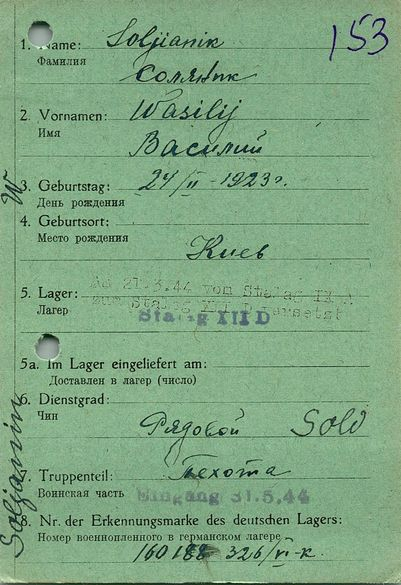 153
1. Name: Soljianik
Фамилия
Соляник
2. Vornamen: Wasilij
Имя
Василий
3. Geburtstag: 24/II-1923 г.
День рождения
4. Geburtsort:
Место рождения
Киев
Ad 21.3.44 von Stalag IX A
5. Lager: zum Stalag III D versetzt
Лагерь
Stalag III D
5a. Im Lager eingeliefert am:
Доставлен в лагерь (число)
6. Dienstgrad:
Чин
Рядовой Sold
7. Truppenteil: Пехота
Воинская часть
Eingang 31.5.44
8. Nr. der Erkennungsmarke des deutschen Lagers:
Номер военнопленного в германском лагере
326/VI-к.
W